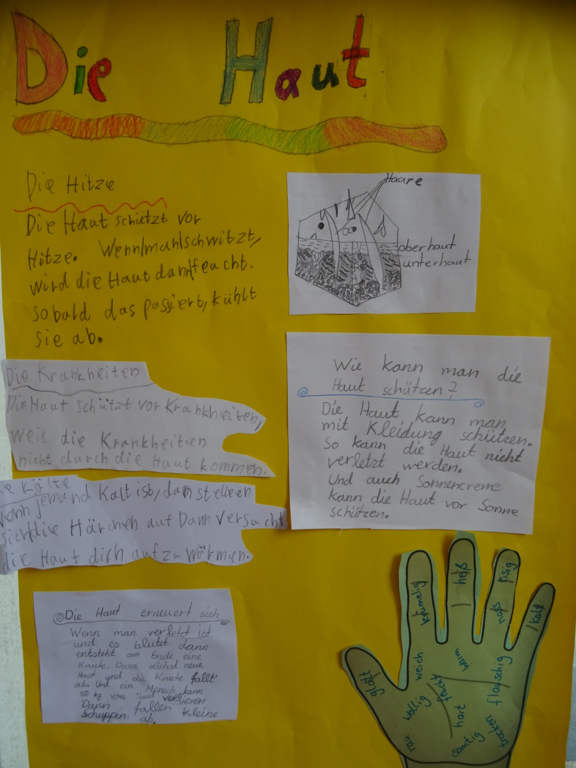 Die Haut
Die Hitze
Die Haut schützt vor
Hitze. Wenn mahlschwitzt,
wird die Haut dann feucht.
sobald das passiert, kühlt
sie ab.
Haare
oberhaut
unterhaut
Die Krankheiten
Die Haut schützt vor Krankheiten,
weil die Krankheiten
nicht durch die Haut kommen.
e Kälte
Wenn jemand Kalt ist, dan stellen
sich die Härchen auf Dann versucht
die Haut dich auf zu wärmen.
Wie kann man die
Haut schützen?
Die Haut kann man
mit Kleidung schützen.
So kann die Haut nicht
verletzt werden.
Und auch Sonnencreme
kann die Haut vor Sonne
schützen.
Die Haut erneuert sich
Wenn man verletzt ist
und es blutet dann
entsteht am Ende eine
Kruste. Dann wächst neue
Haut und die Kruste fällt
ab. Und ein Mensch kann
50 kg von Haut verlieren
Dann fallen kleine
Schuppen ab.
glatt
krümelig
heiß
eisig
kalt
weich
warm
naß
wollig
flauschig
rau
hart
samtig
trocken